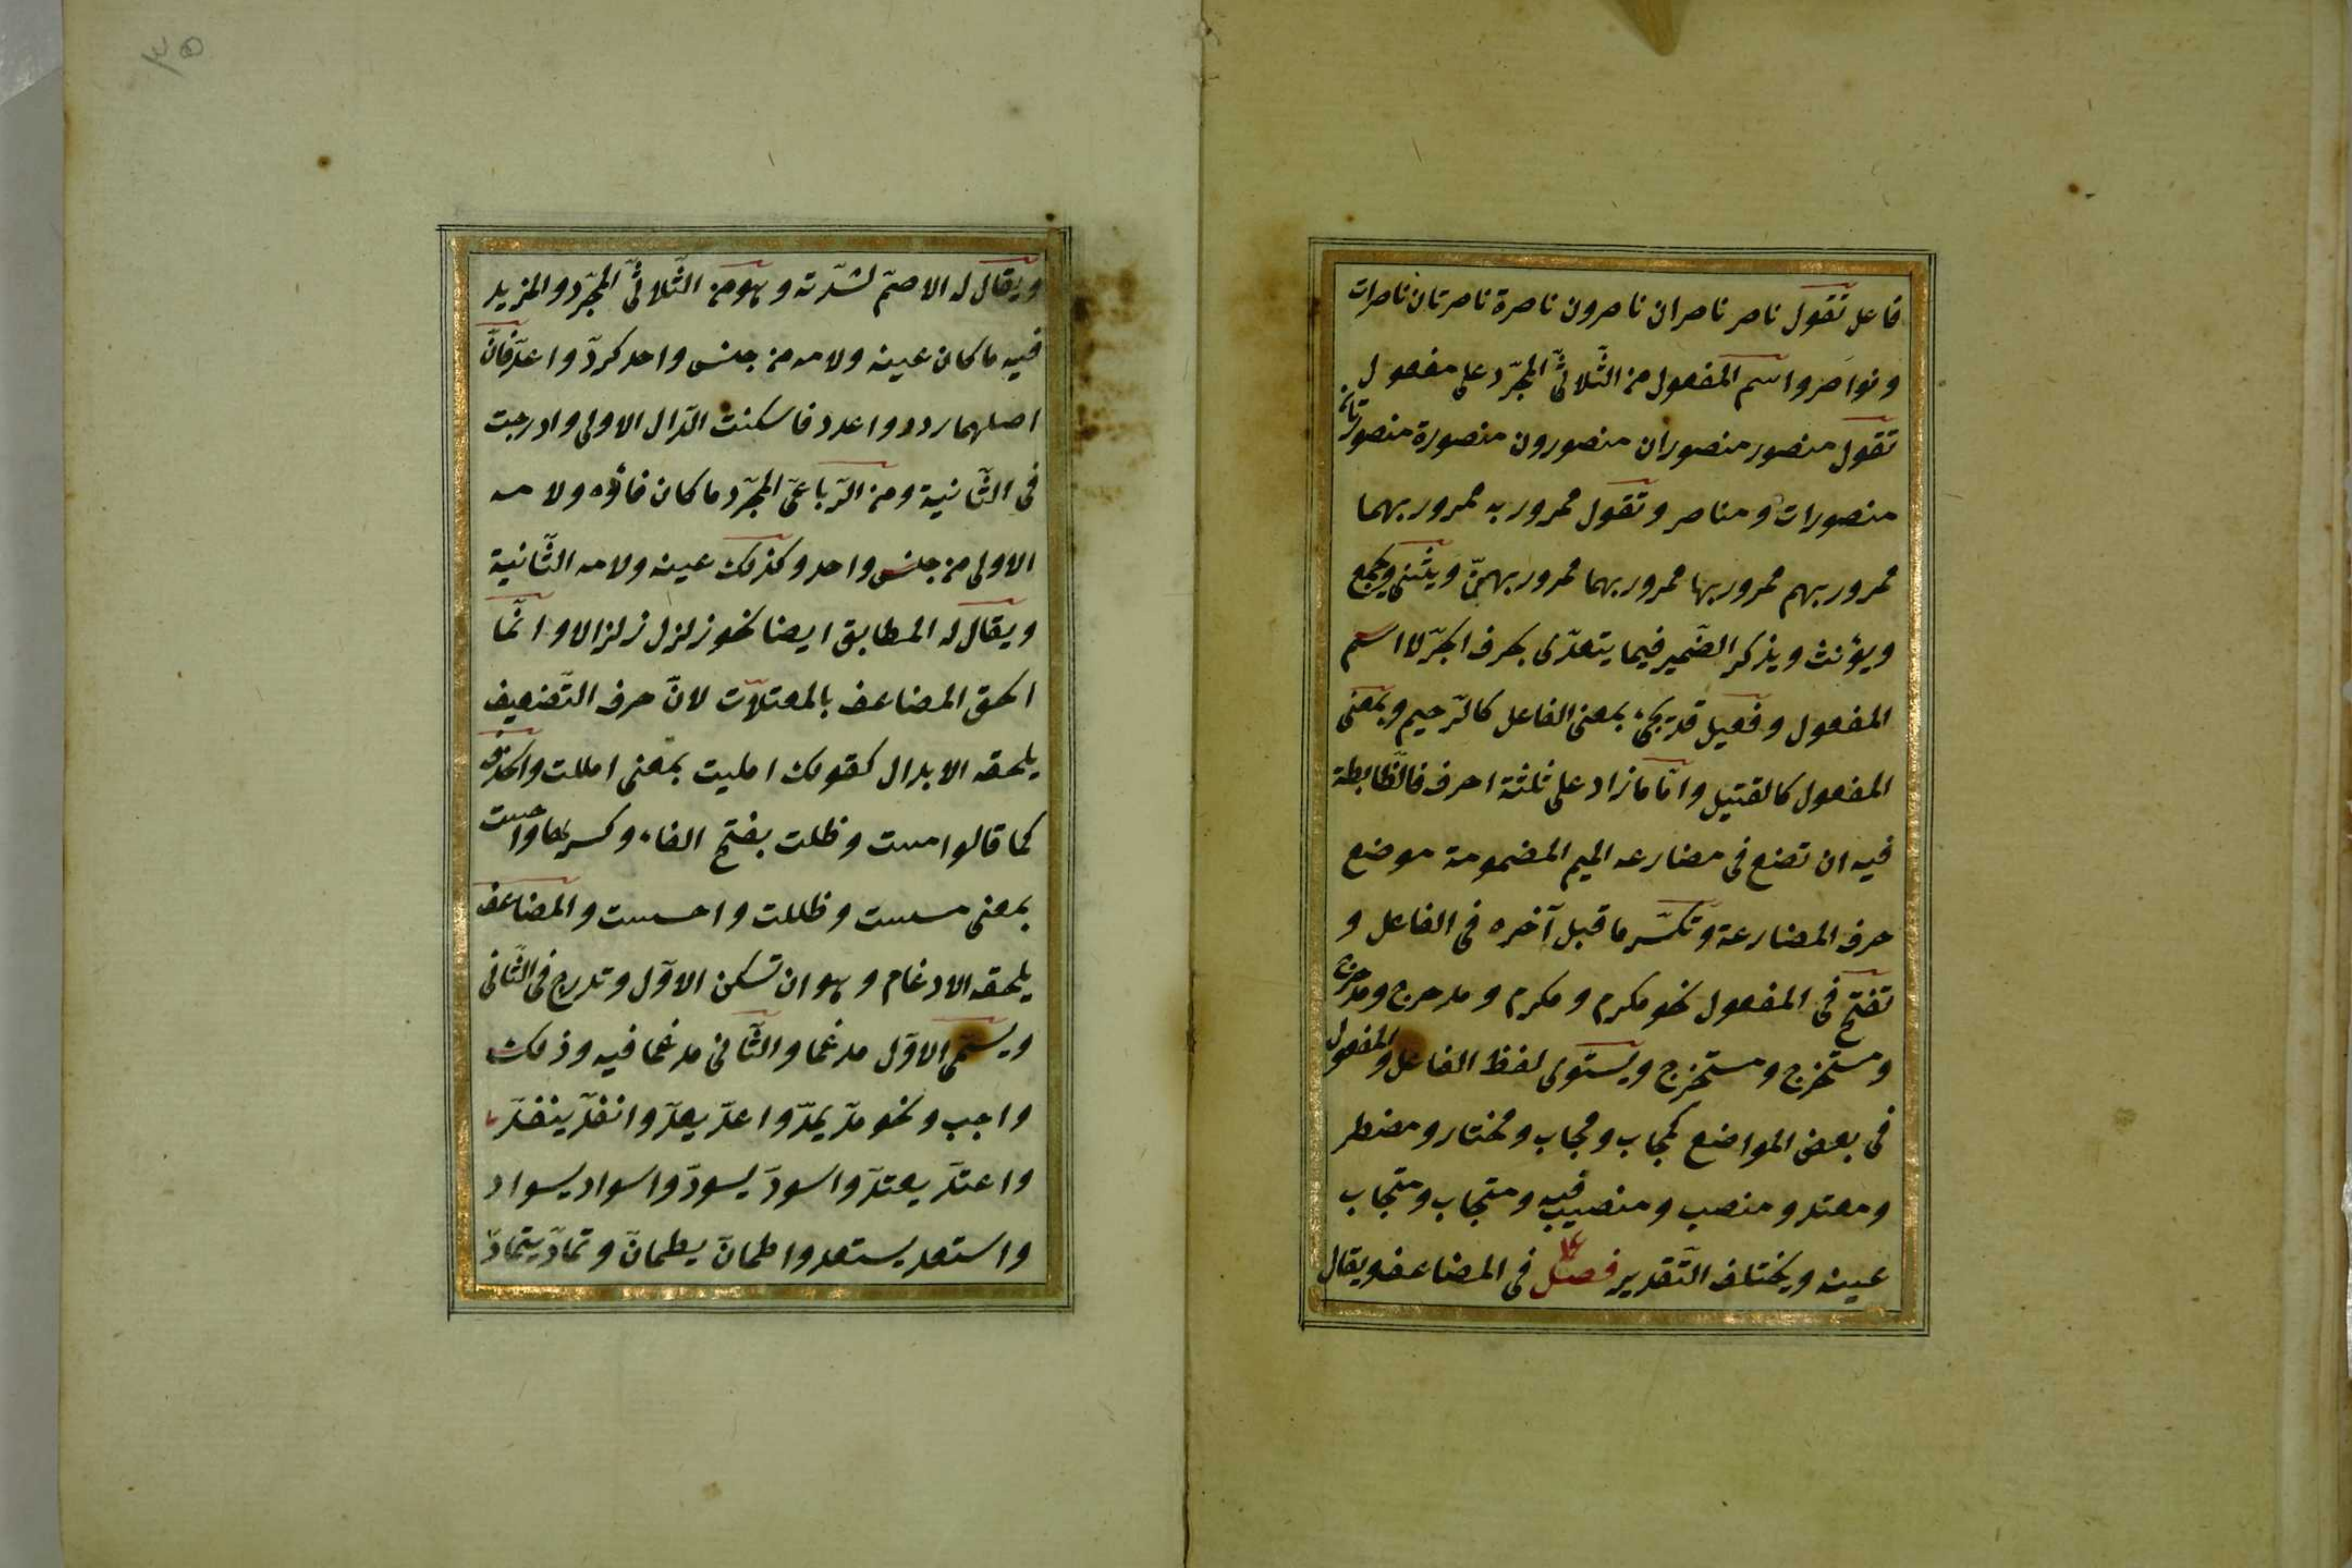 فاعل تقول ناصر ناصران ناصرون ناصرة ناصرتان ناصرات
ونواصر واسم المفعول من الثّلاثىّ المجرّد على مفعول
تقول منصور منصوران منصورون منصورة منصورتان
منصورات ومناصر وتقول ممرور به ممرور بهما
ممرور بهم ممرور بها ممرور بهما ممرور بهنّ ويثنى ويجمع
ويؤنث ويذكر الضّمير فيما يتعدّى بحرف الجرّ لا اسم
المفعول وفعيل قد يجئ بمعنى الفاعل كالرّحيم وبمعنى
المفعول كالقتيل وامّا ما زاد على ثلثة احرف فالظّابطة
فيه ان تضع فى مضارعه الميم المضمومة موضع
حرف المضارعة وتكسّر ما قبل آخره فى الفاعل و
تفتح فى المفعول نحو مكرم ومكرم ومدحرج ومدحرج
ومستخرج ومستخرج ويستوى لفظ الفاعل والمفعول
فى بعض المواضع كمجاب ومجاب ومختار ومضطر
ومعتد ومنصب ومنصب فيه ومتجاب ومتجاب
عينه ويختلف التّقدير فصل فى المضاعف ويقال
٣٥
ويقال له الاصمّ لشدّته وهو من الثّلاثىّ المجرّد والمزيد
فيه ما كان عينه ولامه من جنس واحد كردّ واعدّ فانّ
اصلهما ردد واعدد فاسكنت الدّال الاولى وادرجت
فى الثّانية ومن الرّباعىّ المجرّد ما كان فاؤه ولامه
الاولى من جنس واحد وكذلك عينه ولامه الثّانية
ويقال له المطابق ايضا نحو زلزل زلزالا وانّما
الحق المضاعف بالمعتلاّت لانّ حرف التّضعيف
يلحقه الابدال كقولك امليت بمعنى امللت والحذف
كما قالوا مست وظلت بفتح الفاء وكسرها واحست
بمعنى مسست وظللت واحسست والمضاعف
يلحقه الادغام وهو ان تسكن الاوّل وتدرج فى الثّانى
ويسمّى الاوّل مدغما والثّانى مدغما فيه وذلك
واجب ونحو مدّ يمدّ واعدّ يعدّ وانقدّ ينقدّ
واعتدّ يعتدّ واسودّ يسودّ واسواد يسواد
واستعد يستعد واطمانّ يطمانّ وتمادّ يتمادّ